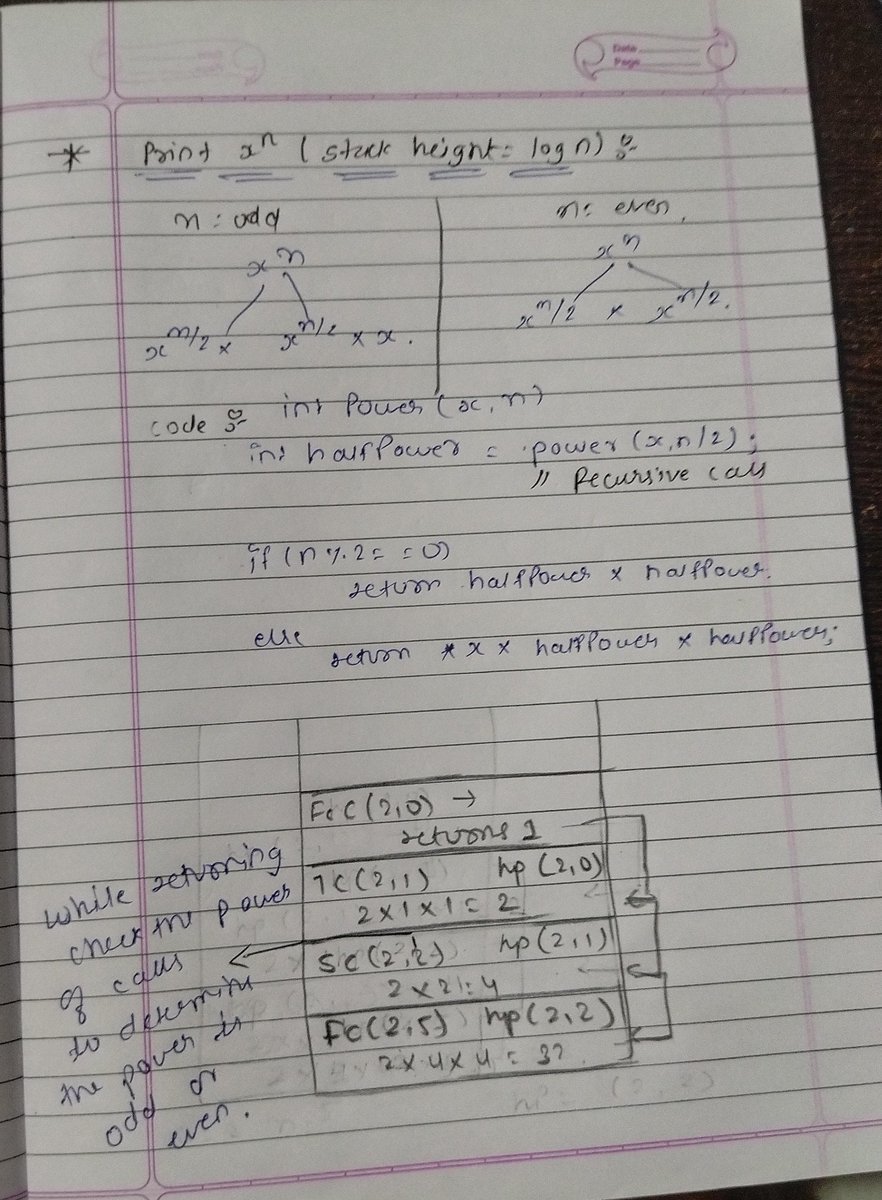 Date
Page
* Print xⁿ ( stack height = log n) :-
n : odd
n: even.
xⁿ
xⁿ
x^n/2 × x^n/2 × x.
x^n/2 × x^n/2.
code :- int Power (x, n)
int halfPower = power (x, n/2);
// Recursive call
if (n % 2 = = 0)
return halfPower × halfPower.
else
return * x × halfPower × halfPower;
FoC (2,0) →
returns 1
TC (2,1) hp (2,0)
2 × 1 × 1 = 2
SC (2,2) hp (2,1)
2 × 2 = 4
FC (2,5) hp (2,2)
2 × 4 × 4 = 32
while returning
check the power
of calls
to determine
the power is
odd or
even.